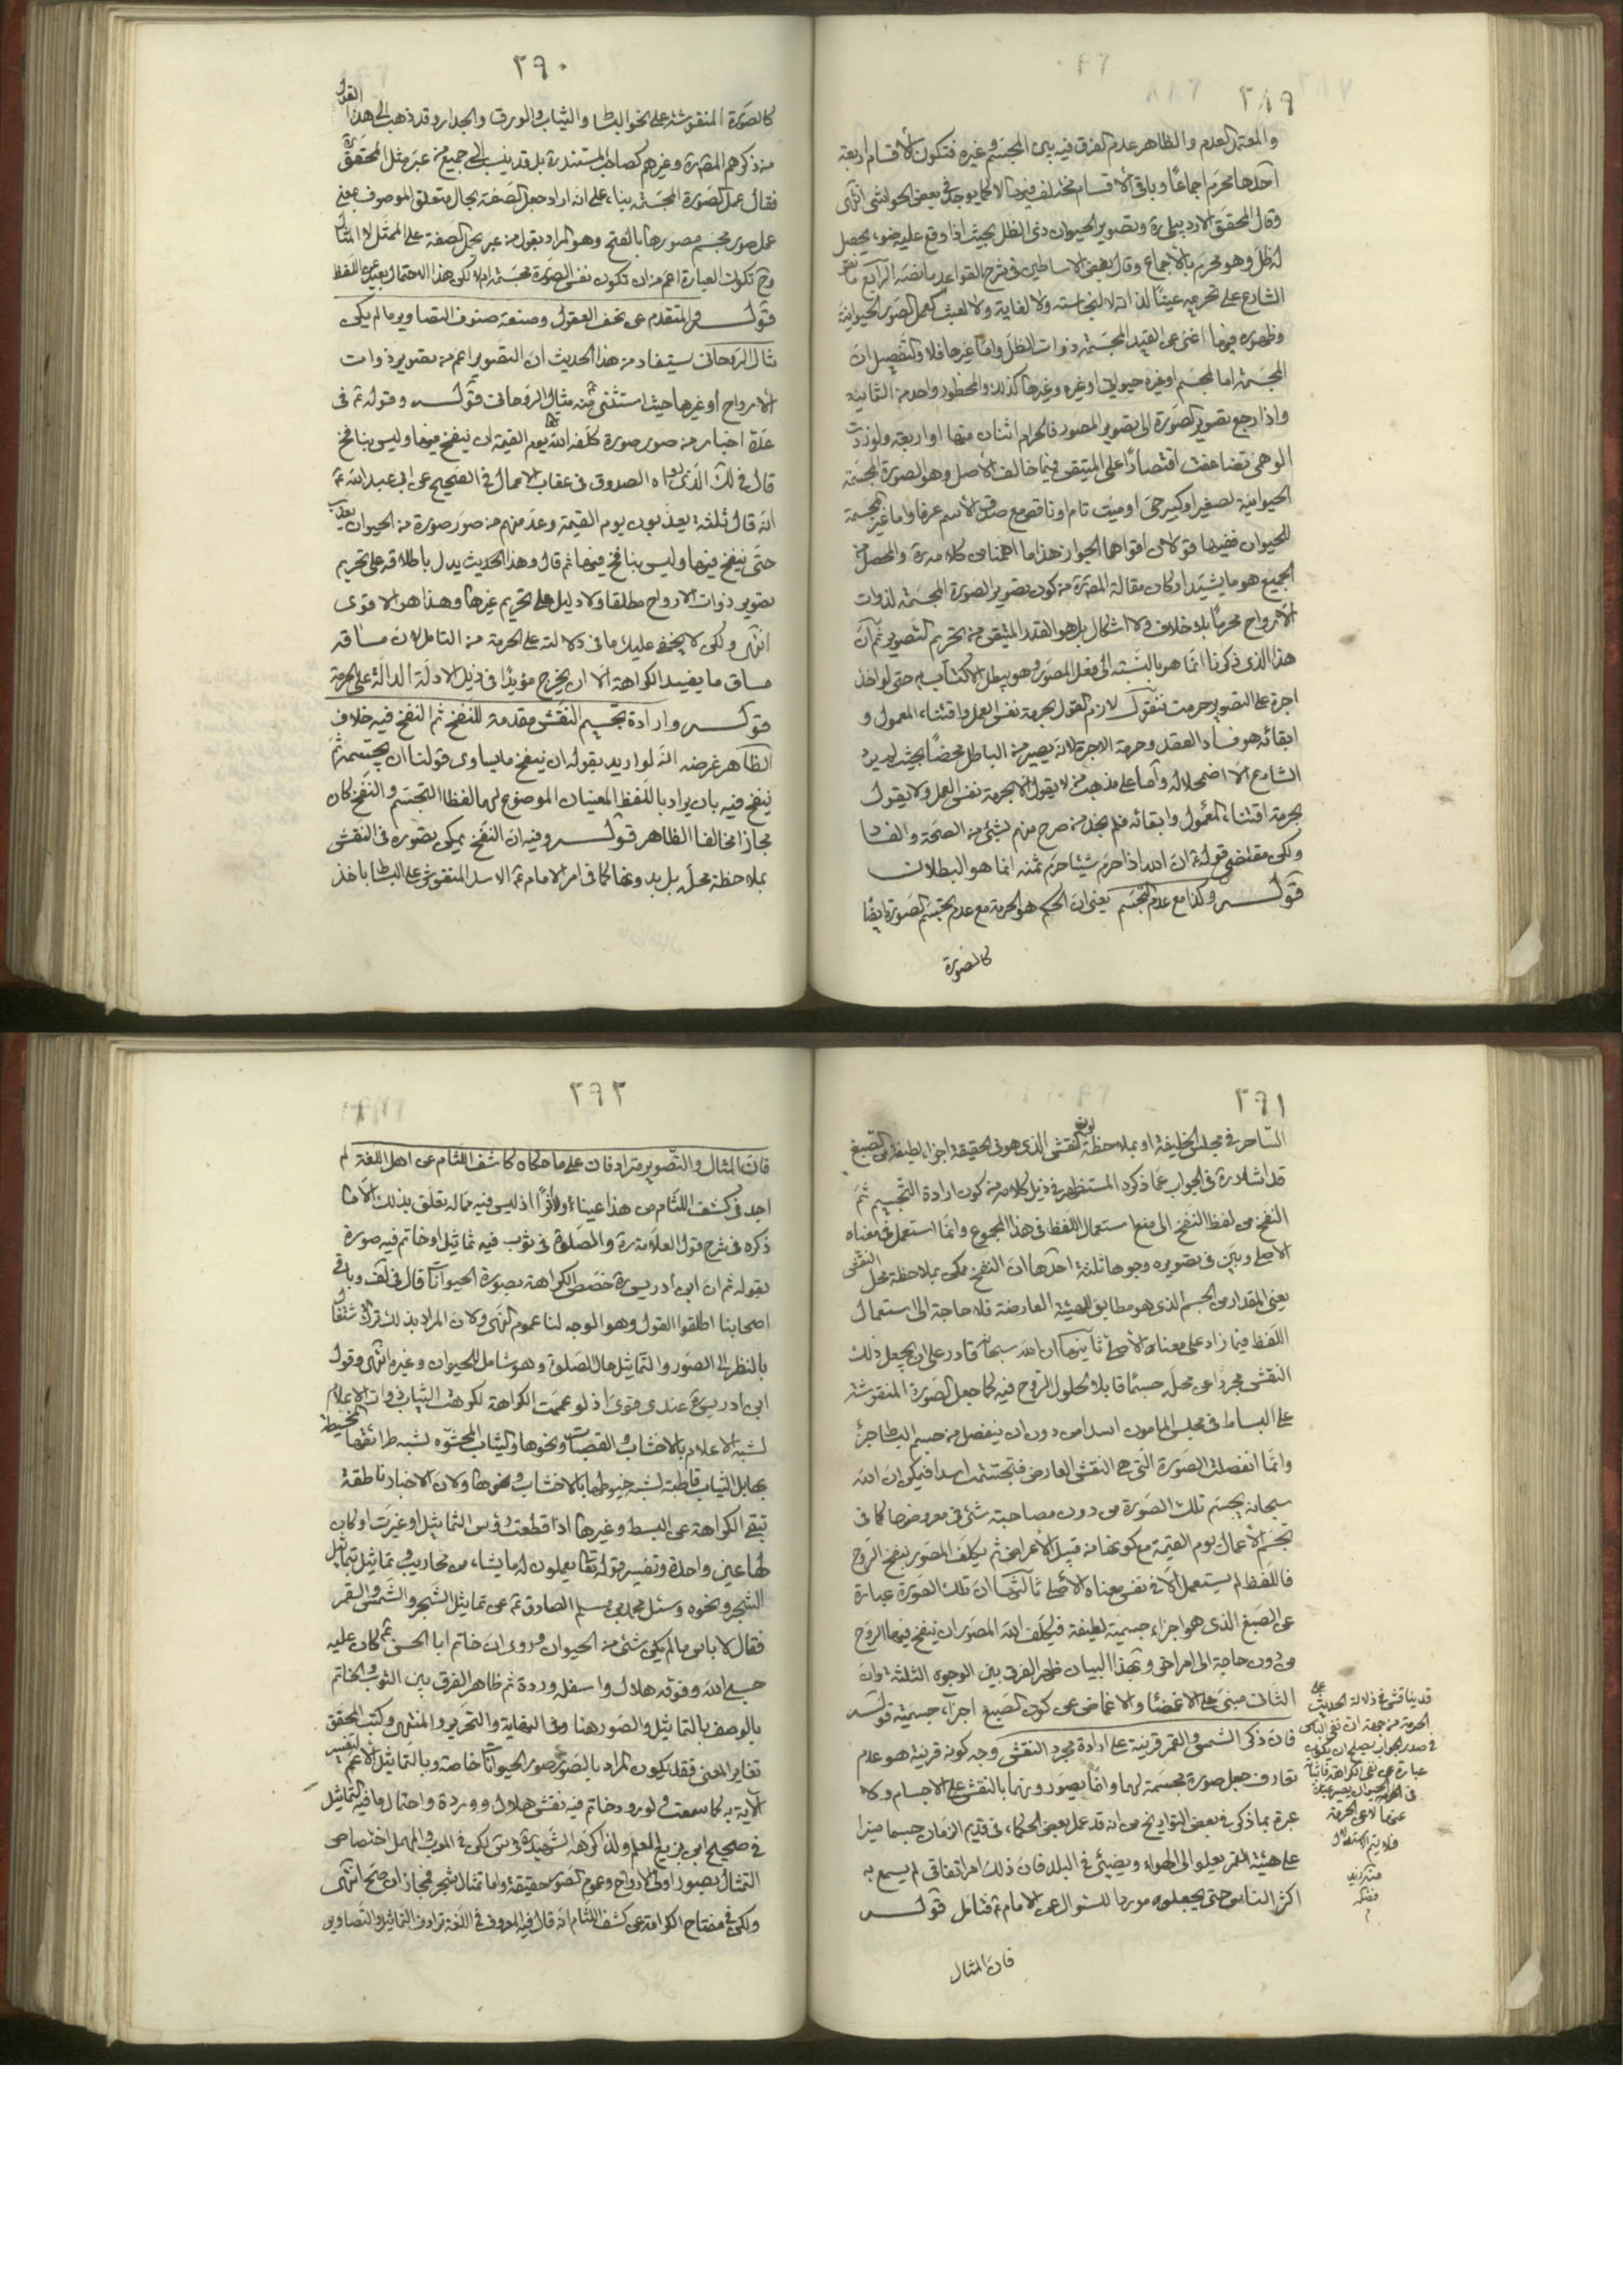 ٢٨٩
والمعتمد العدم والظاهر عدم الفرق فيه بين المجسم وغيره فتكون الأقسام اربعة
احدها محرم اجماعًا وباقى الأقسام مختلف فيها الا كما يوجد فى بعض الحواشى انتهى
وقال المحقق الاردبيلى ره وتصوير الحيوان ذى الظل بحيث اذا وقع عليه ضوء يحصل
له ظل وهو محرم بالاجماع وقال بعض الاساطين فى شرح القواعد ما نصه الرابع ما نص
الشارع على تحريمه عينًا لذاته لا لنجاسته ولا لغاية ولا لعبث كعمل الصور الحيوانية
وظهوره فيها اغنى عن القيد المجسمة ذوات الظل واما غيرها فلا والتفصيل ان
المجسمة اما لمجسم او غيره حيوانى او غيره وغيرها كذلك والمحظور واحد من الثمانية
واذا رجع تصوير الصورة الى تصوير المصور فالحرام اثنان منها او اربعة ولو زدت
الوهمى تضاعفت اقتصارًا على المتيقن فيما خالف الأصل وهو الصورة المجسمة
الحيوانية لصغير او كبير حى او ميت تام او ناقص مع صدق الاسم عرفا واما غير المجسمة
للحيوان ففيها قولان اقواهما الجواز هذا ما اهمنا من كلامه ره والمحصل من
الجميع هو ما يشيد اركان مقالة المصنف ره من كون تصوير الصورة المجسمة لذوات
الارواح محرمًا بلا خلاف ولا اشكال بل هو القدر المتيقن من تحريم التصوير ثم ان
هذا الذى ذكرنا انما هو بالنسبة الى فعل المصور وهو يبطل الاكتساب به حتى لو اخذ
اجرة على التصوير حرمت فنقول لازم القول بحرمة نفس العمل واقتناء المعمول و
ابقائه هو فساد العقد وحرمة الاجرة لانه يصير من الباطل محضًا بحيث لم يرد
الشارع الا اضمحلاله وأما على مذهب من لا يقول الا بحرمة نفس العمل ولا يقول
بحرمة اقتناء المعمول وابقائه فلم نجد من صرح منهم بشئ من الصحة والفساد
ولكن مقتضى قوله ع ان الله اذا حرم شيئا حرم ثمنه انما هو البطلان
قوله وكذا مع عدم التجسم يعنى ان الحكم هو الحرمة مع عدم تجسم الصورة ايضًا
كالصورة
٢٩٠
كالصورة المنقوشة على نحو البساط والثياب والورق والجدار وقد ذهب الى هذا القول
من ذكرهم المصنف ره وغيرهم كصاحب المستند ره بل قد ينسب الى جميع من عبر مثل المحقق ره
فقال عمل الصورة المجسمة بناء على انه اراد جعل الصفة بحال متعلق الموصوف بمعنى
عمل صور مجسم مصورها بالفتح وهو المراد بقول من عبر بجعل الصفة على الممثل لا المثال
وح تكون العبارة اعم من ان تكون نفس الصورة مجسمة ام لا لكن هذا الاحتمال بعيد عن اللفظ
قوله والمتقدم عن تحف العقول وصنعة صنوف التصاوير ما لم يكن
مثال الروحانى يستفاد من هذا الحديث ان التصوير اعم من تصوير ذوات
الارواح او غيرها حيث استثنى منه مثال الروحانى قوله وقوله ع فى
عدة اخبار من صور صورة كلفه الله يوم القيمة ان ينفخ فيها وليس بنافخ
قال فى لك الذى رواه الصدوق فى عقاب الاعمال فى الصحيح عن ابى عبد الله ع
انه قال ثلثة يعذبون يوم القيمة وعد منهم من صور صورة من الحيوان يعذب
حتى ينفخ فيها وليس بنافخ فيها ثم قال وهذا الحديث يدل باطلاقه على تحريم
تصوير ذوات الارواح مطلقا ولا دليل على تحريم غيرها وهذا هو الاقوى
انتهى ولكن لا يخفى عليك ما فى دلالته على الحرمة من التامل لان مساقه
مساق ما يفيد الكراهة الا ان يخرج مؤيدًا فى ذيل الادلة الدالة على الحرمة
قوله وارادة تجسيم النقش مقدمة للنفخ ثم النفخ فيه خلاف
الظاهر غرضه انه لو اريد بقوله ان ينفخ ما يساوى قولنا ان يجسمه ثم
ينفخ فيه بان يراد باللفظ المعنيان الموضوع لهما لفظا التجسم والنفخ كان
مجازا مخالفا للظاهر قوله وفيه ان النفخ يمكن تصوره فى النقش
بملاحظة محله بل بدونها كما فى امر الامام ع الاسد المنقوش على البساط باخذ
٢٩١
الساحر فى مجلس الخليفة او بملاحظة لون النقش الذى هو فى الحقيقة اجزاء لطيفة من الصبغ
قد اشار ره فى الجواب عما ذكره المستظهر فى ذيل كلامه من كون ارادة التجسيم ثم
النفخ من لفظ النفخ الى منع استعمال اللفظ فى هذا المجموع وانما استعمل فى معناه
الاصلى وبين فى تصويره وجوها ثلثة احدها ان النفخ ممكن بملاحظة محل النقش
يعنى المقدار من الجسم الذى هو مطابق للهيئة العارضة فلا حاجة الى استعمال
اللفظ فيما زاد على معناه الأصلى ثانيها ان الله سبحانه قادر على ان يجعل ذلك
النقش مجردا عن محله جسمًا قابلا لحلول الروح فيه كما جعل الصورة المنقوشة
على البساط فى مجلس المامون اسدا من دون ان ينفصل من جسم البساط جزء
وانما انفصلت الصورة التى هى النقش العارض فتجسمت اسدا فيمكن ان الله
سبحانه يجسم تلك الصورة من دون مصاحبة شئ من معروضها كما فى
تجسم الأعمال يوم القيمة مع كونها من قبيل الأعراض ثم يكلف المصور بنفخ الروح
فاللفظ لم يستعمل الا فى نفس معناه الأصلى ثالثها ان تلك الصورة عبارة
عن الصبغ الذى هو اجزاء جسمية لطيفة فيكلف الله المصور ان ينفخ فيها الروح
من دون حاجة الى امر اخر وبهذا البيان ظهر الفرق بين الوجوه الثلثة وان
الثانى مبنى على الاغضاء والاغماض عن كون الصبغ اجزاء جسمية قوله
فان ذكر الشمس والقمر قرينة على ارادة مجرد النقش وجه كونه قرينة هو عدم
تعارف جعل صورة مجسمة لهما وانما يصورونهما بالنقش على الاجسام ولا
عبرة بما ذكر فى بعض التواريخ من انه قد عمل بعض الحكماء فى قديم الزمان جسما منيرا
على هيئة القمر يعلو الى الهواء ويضيئ فى البلد فان ذلك امر اتفاقى لم يسمع به
اكثر الناس حتى يجعلوه موردا للسئوال عن الامام ع فتامل قوله
فان المثال
قد يناقش فى دلالة الحديث على
الحرمة من جهة ان نفى الباس
فى صدر الجواب يصلح ان يكون
عبارة عن نفى الكراهة
فلا يتم الاستدلال
٢٩٢
فان المثال والتصوير مترادفان على ما حكاه كاشف اللثام عن اهل اللغة لم
اجد فى كشف اللثام من هذا عينا ولا أثرًا اذ ليس فيه مما له تعلق بذلك الا ما
ذكره فى شرح قول العلامة ره والصلوة فى ثوب فيه تماثيل او خاتم فيه صورة
بقوله ثم ان ابن ادريس ره خصص الكراهة بصورة الحيوانات قال فى لف وباقى
اصحابنا اطلقوا القول وهو الوجه لنا عموم النهى ولان المراد بذلك ترك الاشتغال
بالنظر الى الصور والتماثيل حال الصلوة وهو شامل للحيوان وغيره انتهى وقول
ابن ادريس ره عندى قوى اذ لو عممت الكراهة لكرهت الثياب ذوات الاعلام
لشبه الاعلام بالاخشاب والقصبات ونحوها والثياب المحشوة لشبه طرائقها المخيطة
بها بل الثياب قاطبة لشبه خيوطها بالاخشاب ونحوها ولان الاخبار ناطقة
بنفى الكراهة عن البسط وغيرها اذا قطعت رؤس التماثيل او غيرت او كان
لها عين واحدة وتفسير قوله تعالى يعملون له ما يشاء من محاريب وتماثيل بتماثيل
الشجر ونحوه وسئل محمد بن مسلم الصادق ع عن تماثيل الشجر والشمس والقمر
فقال لا باس ما لم يكن شئ من الحيوان وروى ان خاتم ابى الحسن ع كان عليه
حسبى الله وفوقه هلال واسفله وردة ثم ظاهر الفرق بين الثوب والخاتم
بالوصف بالتماثيل والصور هنا وفى النهاية والتحرير والمنتهى وكتب المحقق
تغاير المعنى فقد يكون المراد بالصور صور الحيوانات خاصة وبالتماثيل الاعم لتفسير
الاية به كما سمعت ولورود خاتم فيه نقش هلال ووردة واحتمال ما فيه التماثيل
فى صحيح ابن بزيع المعلم ولذا كره الشهيد ره فى س لكن فى المعرب والمهمل اختصاص
التمثال بصور اولى الارواح وعموم الصور حقيقة واما تمثال شجر فمجاز ان صح انتهى
ولكن فى مفتاح الكرامة عن كشف اللثام انه قال فيه المعروف فى اللغة ترادف التماثيل والتصاوير